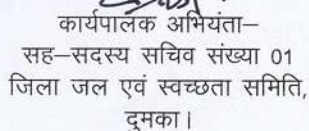 कार्यपालक अभियंता–
सह–सदस्य सचिव संख्या 01
जिला जल एवं स्वच्छता समिति,
दुमका।